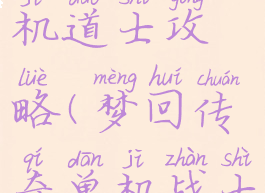 jī dào shì gōng
机道士攻
lüè mèng huí chuán
略(梦回传
qí dān jī zhàn shì
奇单机战士